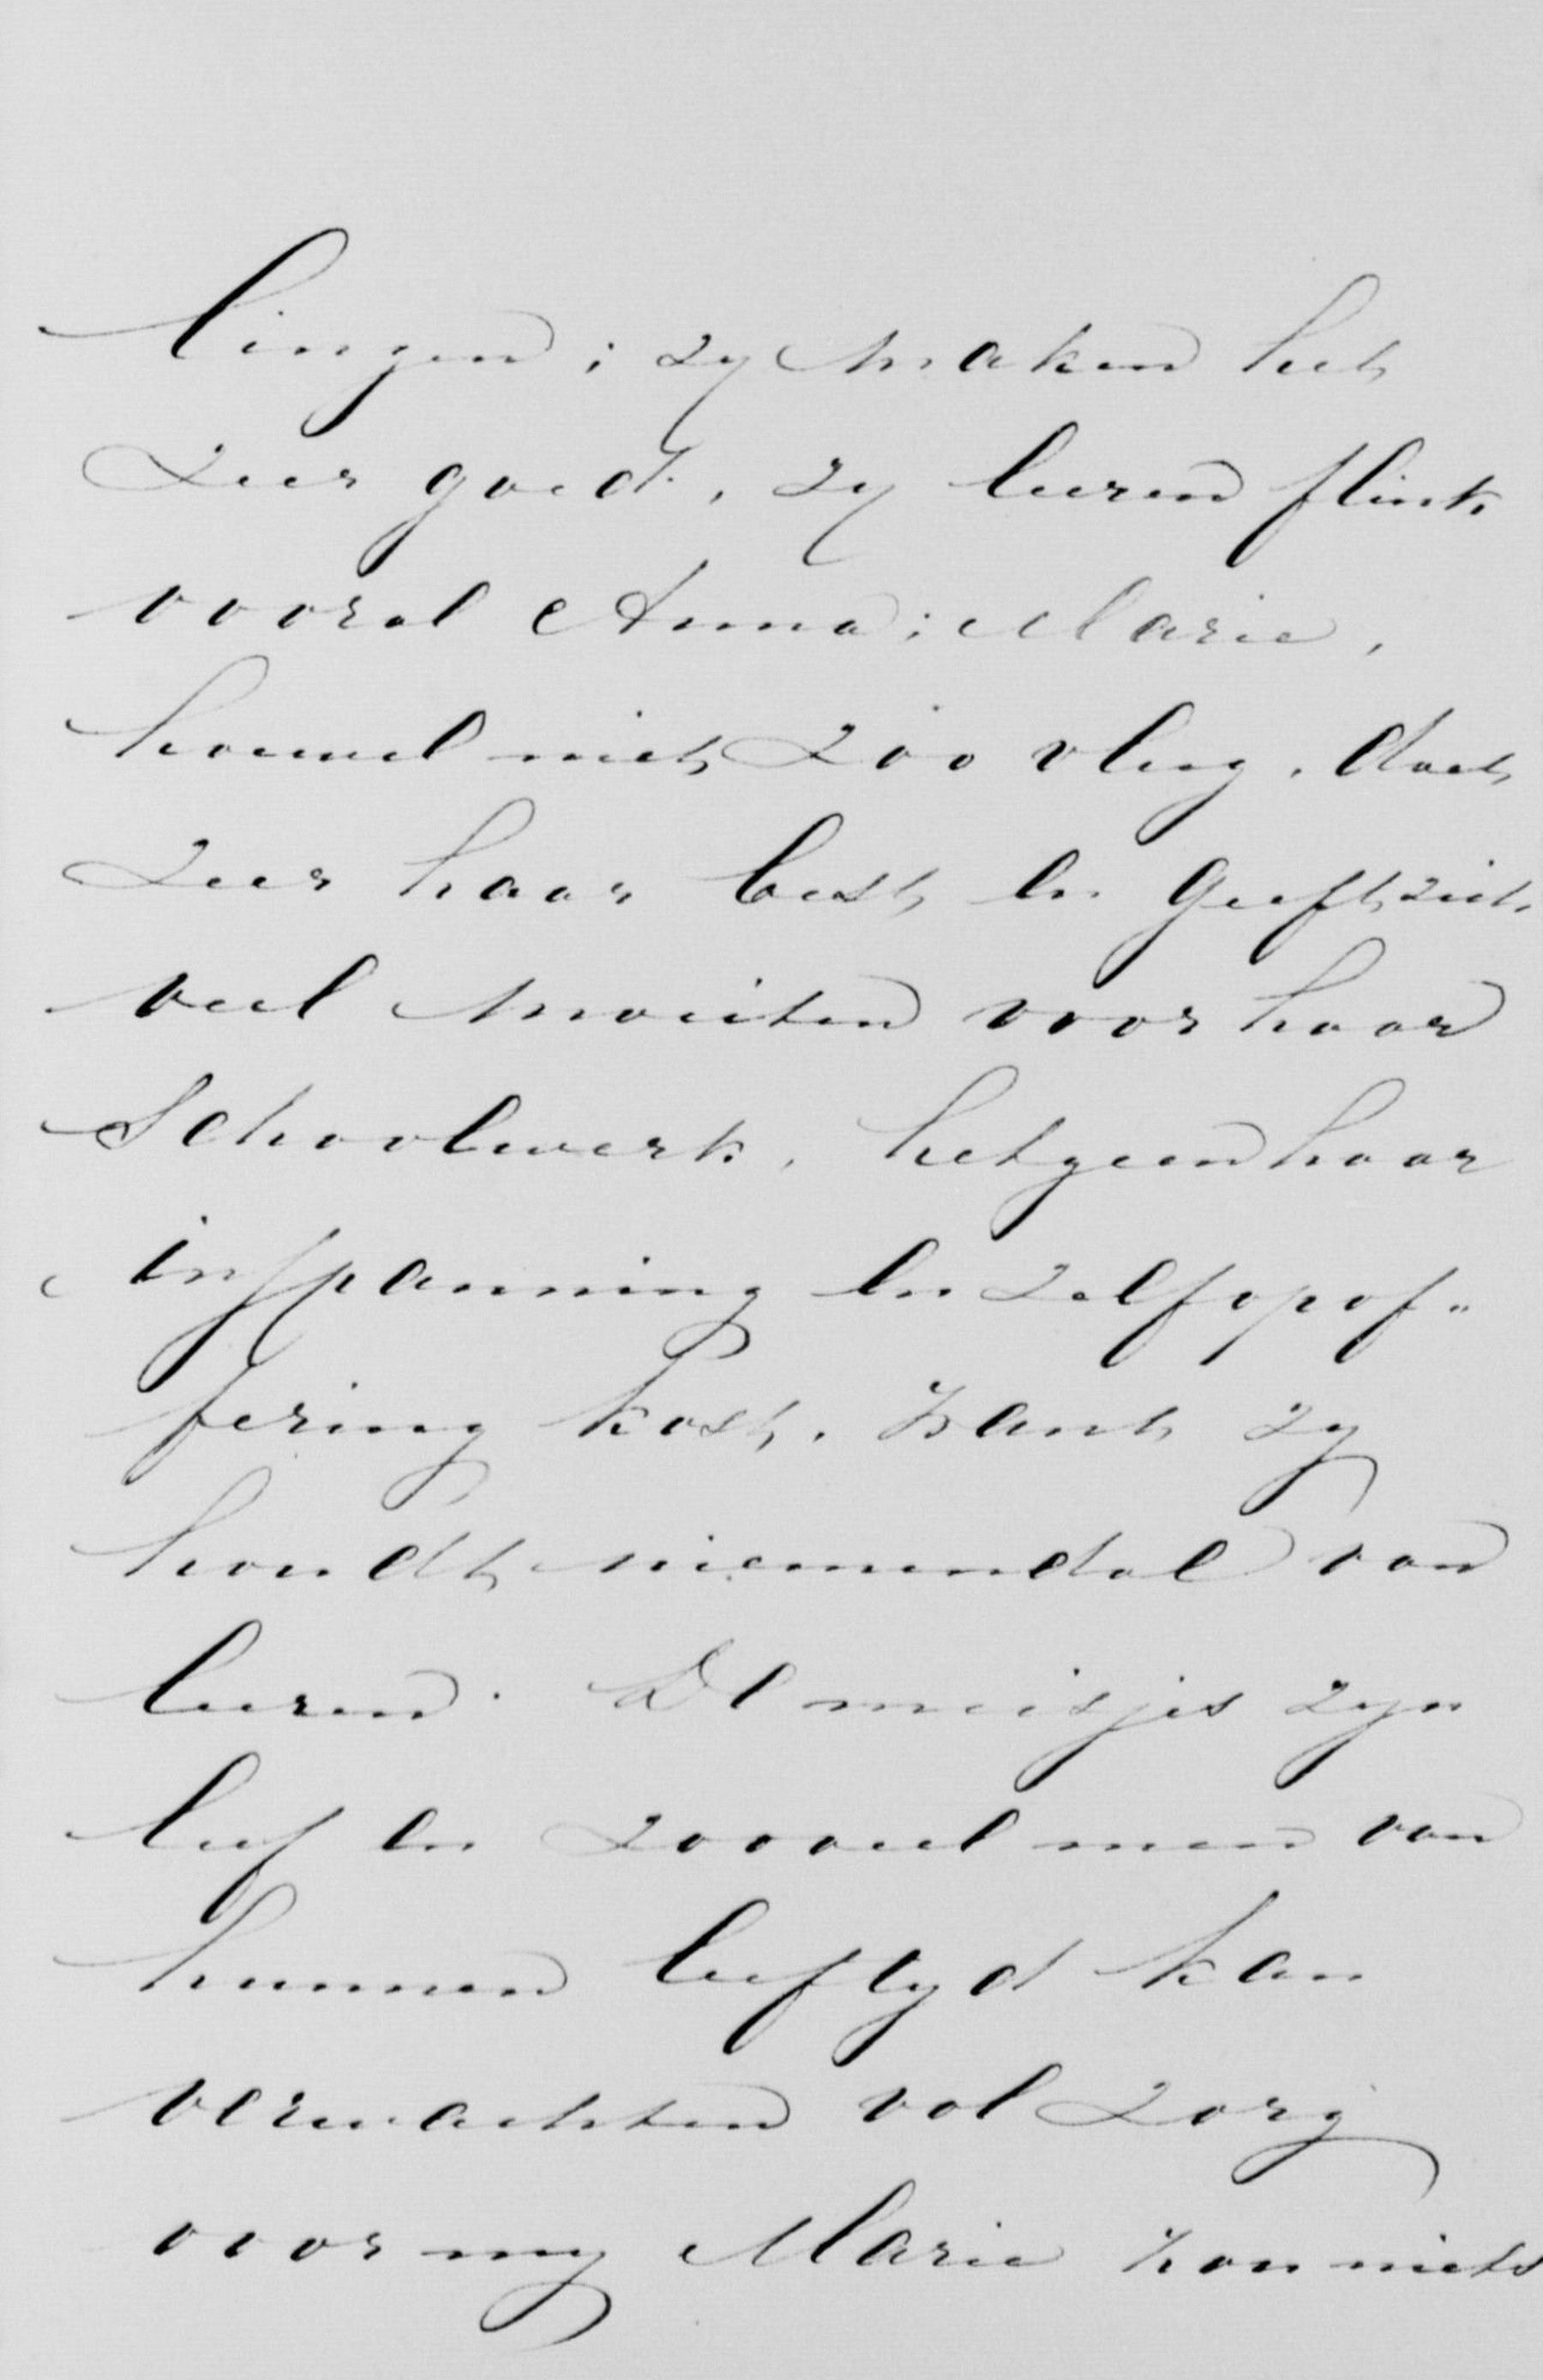 lingen; zy maken het
zeer goed, zy leeren flink
vooral Anna; Marie,
hoewel niet zoo vlug, doet
zeer haar best en geeft zich
veel moeiten voor haar
schoolwerk, hetgeen haar
inspanning en zelfopof„
fering kost. Want zy
houdt niemendal van
leeren. De meisjes zyn
lief en zooveel men van
hunnen leeftyd kan
verwachten vol zorg
voor my Marie zou niets